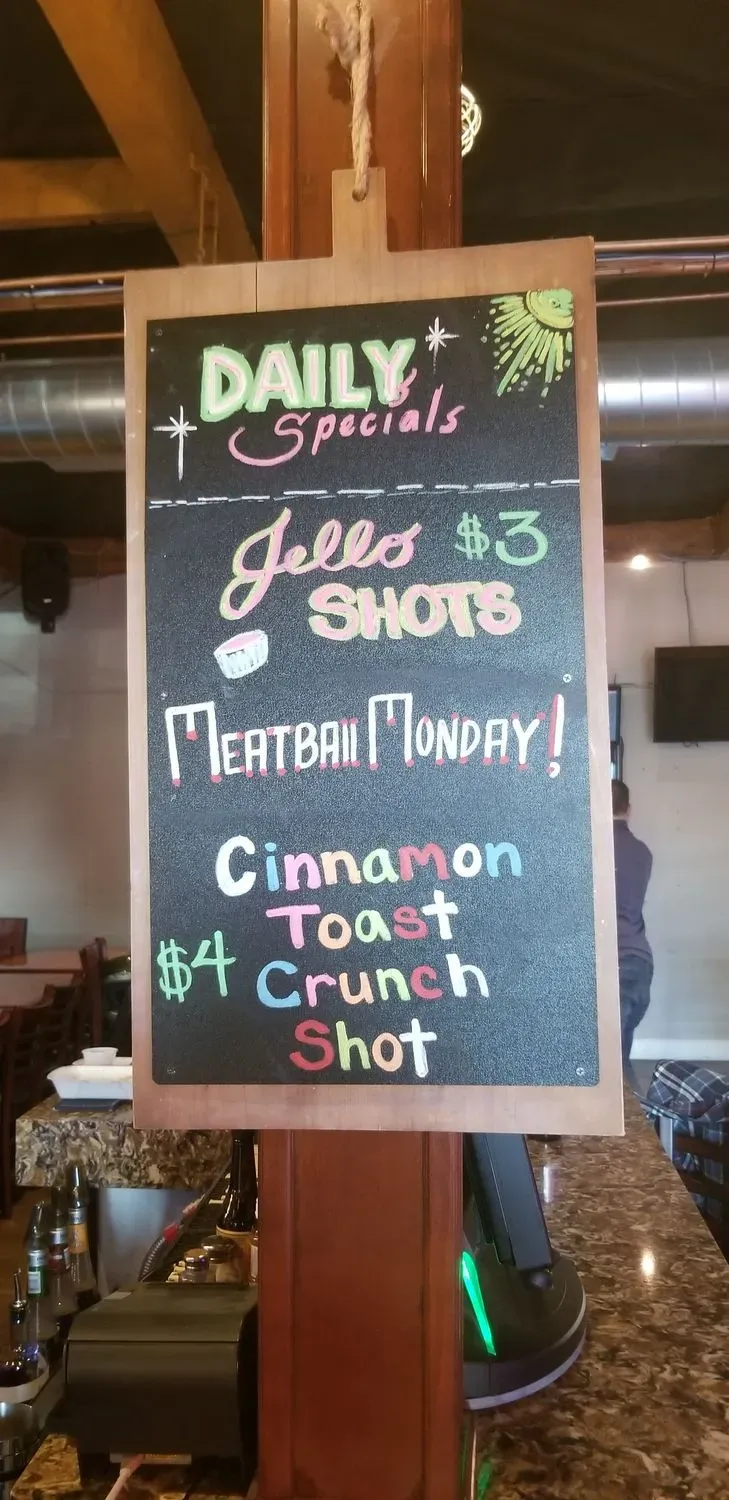 DAILY
Specials
Jello $3
SHOTS
MEATBAll MONDAY!
Cinnamon
Toast
$4 Crunch
Shot